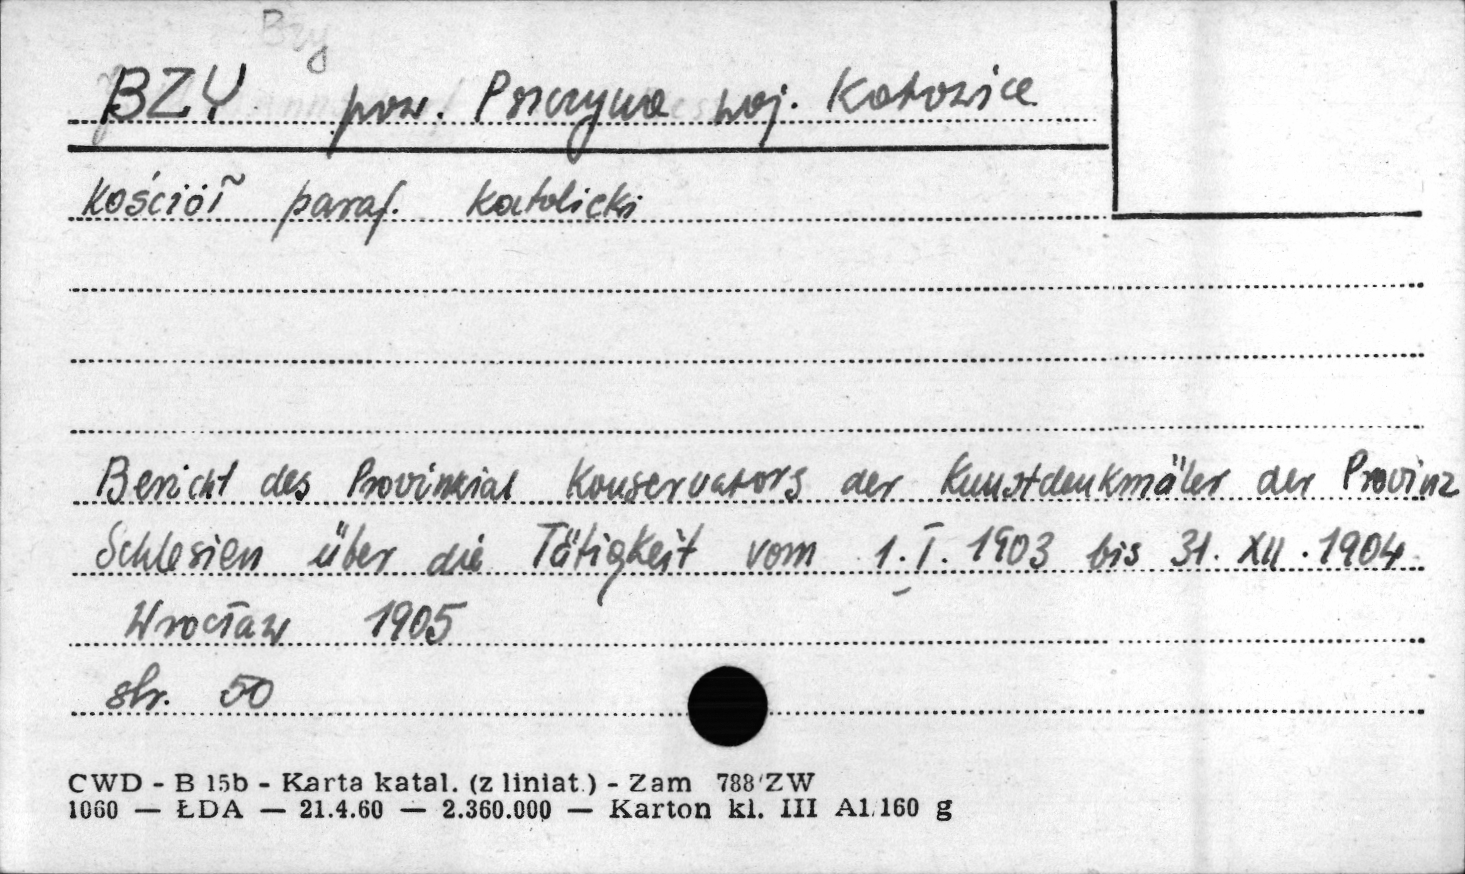 Bzy
BZY pow. Pszczyna woj. Katowice
kościół paraf. katolicki
Bericht des Provinzial Konservators der Kunstdenkmäler der Provinz
Schlesien über die Tätigkeit vom 1.I.1903 bis 31.XII.1904
Wrocław 1905
str. 50
CWD - B 15b - Karta katal. (z liniat.) - Zam 788/ZW
1060 — ŁDA — 21.4.60 — 2.360.000 — Karton kl. III A1/160 g